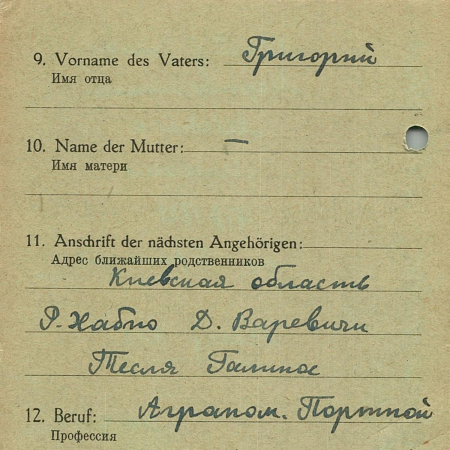 9. Vorname des Vaters: Григорий
Имя отца
10. Name der Mutter: —
Имя матери
11. Anschrift der nächsten Angehörigen:
Адрес ближайших родственников
Киевская область
Р-Хабно Д. Варевичи
Тесля Галина
12. Beruf: Аграном. Портной
Профессия